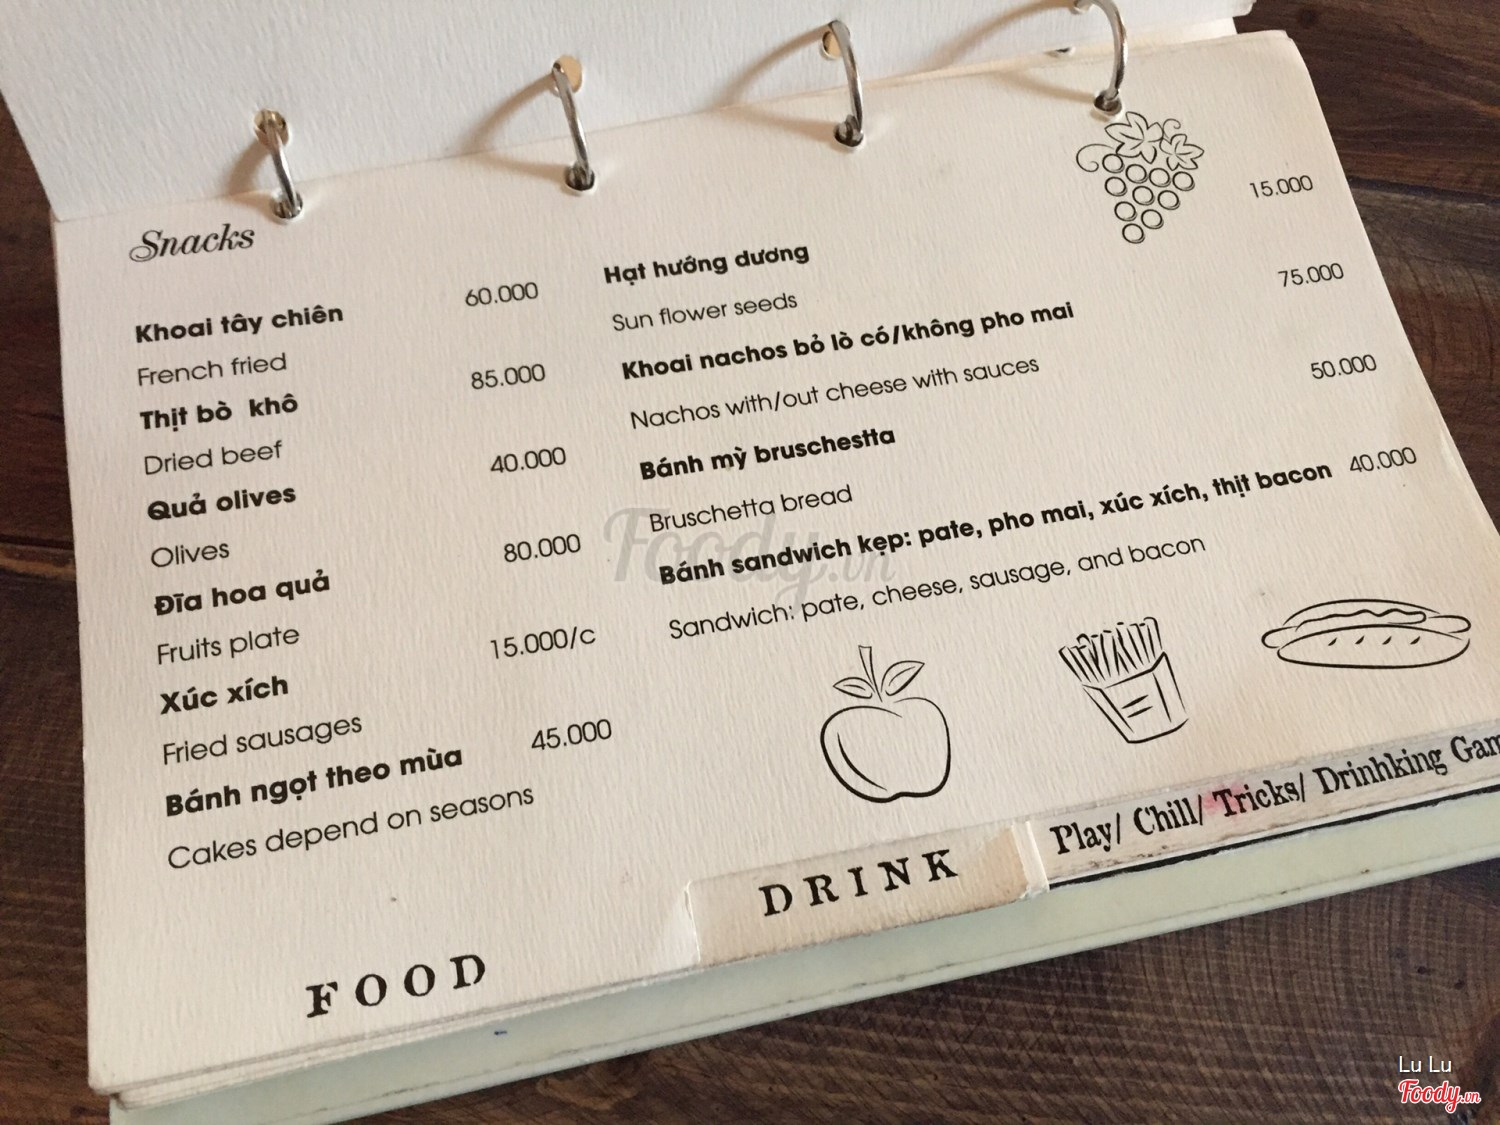 Snacks
Khoai tây chiên 60.000
French fried
Thịt bò khô 85.000
Dried beef
Quả olives 40.000
Olives
Đĩa hoa quả 80.000
Fruits plate
Xúc xích 15.000/c
Fried sausages
Bánh ngọt theo mùa 45.000
Cakes depend on seasons
Hạt hướng dương 15.000
Sun flower seeds
Khoai nachos bỏ lò có/không pho mai 75.000
Nachos with/out cheese with sauces
Bánh mỳ bruschestta 50.000
Bruschetta bread
Bánh sandwich kẹp: pate, pho mai, xúc xích, thịt bacon 40.000
Sandwich: pate, cheese, sausage, and bacon
Foody.vn
FOOD
DRINK
Play/ Chill/ Tricks/ Drinhking Gam
Lu Lu
Foody.vn